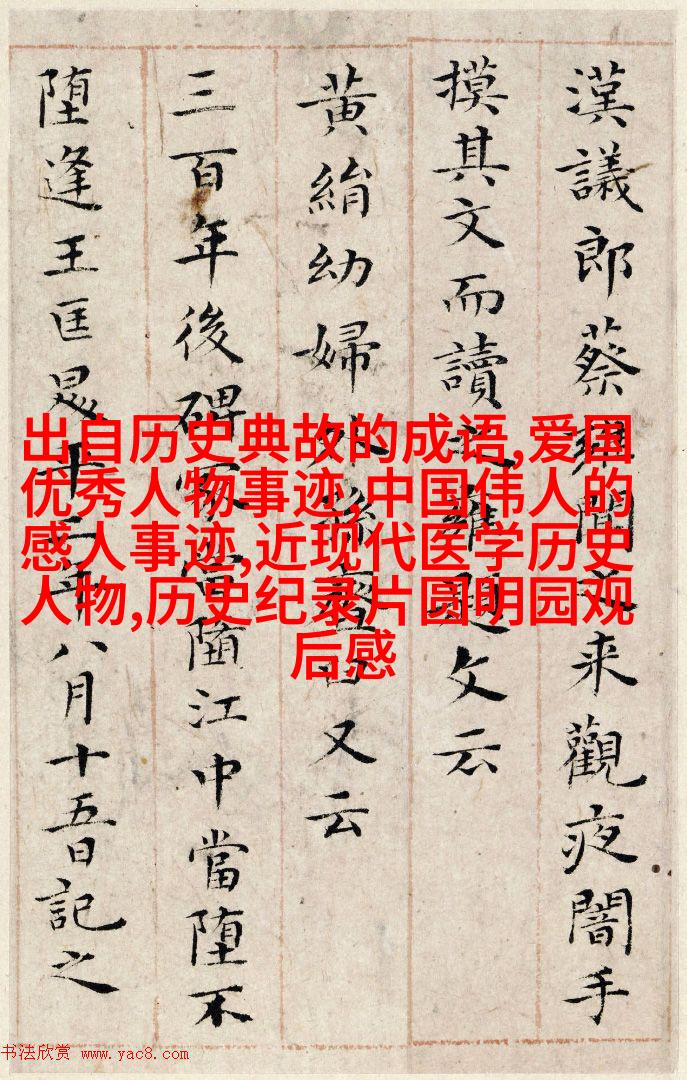 漢議郎蔡雍聞之来觀夜闇手
摸其文而讀之雍題文云
黃絹幼婦外孫韲臼又云
三百年後碑冢當墮江中當堕不
堕逢王匡二年八月十五日記之
出自历史典故的成语,爱国
优秀人物事迹,中国伟人的
感人事迹,近现代医学历史
人物,历史纪录片圆明园观
后感
书法欣赏 www.yac8.com